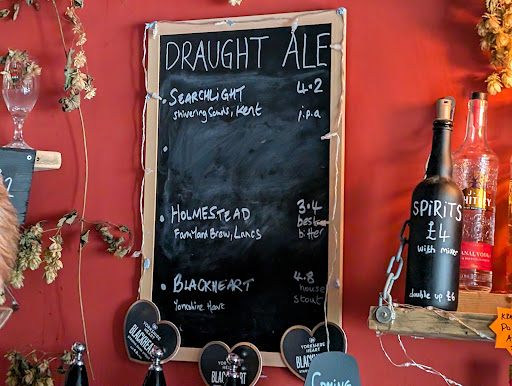 DRAUGHT ALE
SEARCHLIGHT 4.2
Shivering Sands, Kent i.p.a
HOLMESTEAD 3.4
Farmyard Brew, Lancs best bitter
BLACKHEART 4.8
Yorkshire Heart house stout
YORKSHIRE HEART
BLACKHEART
YORKSHIRE HEART
BLACKHEART
YORKSHIRE HEART
COMING
SPIRITS
£4
with mixer
double up £6
WHITLEY